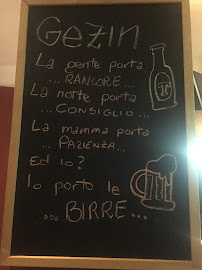 Gezin
La gente porta
... RANCORE...
La notte porta
... CONSIGLIO...
La mamma porta
... PAZIENZA...
Ed io?
Io porto le
... BIRRE...